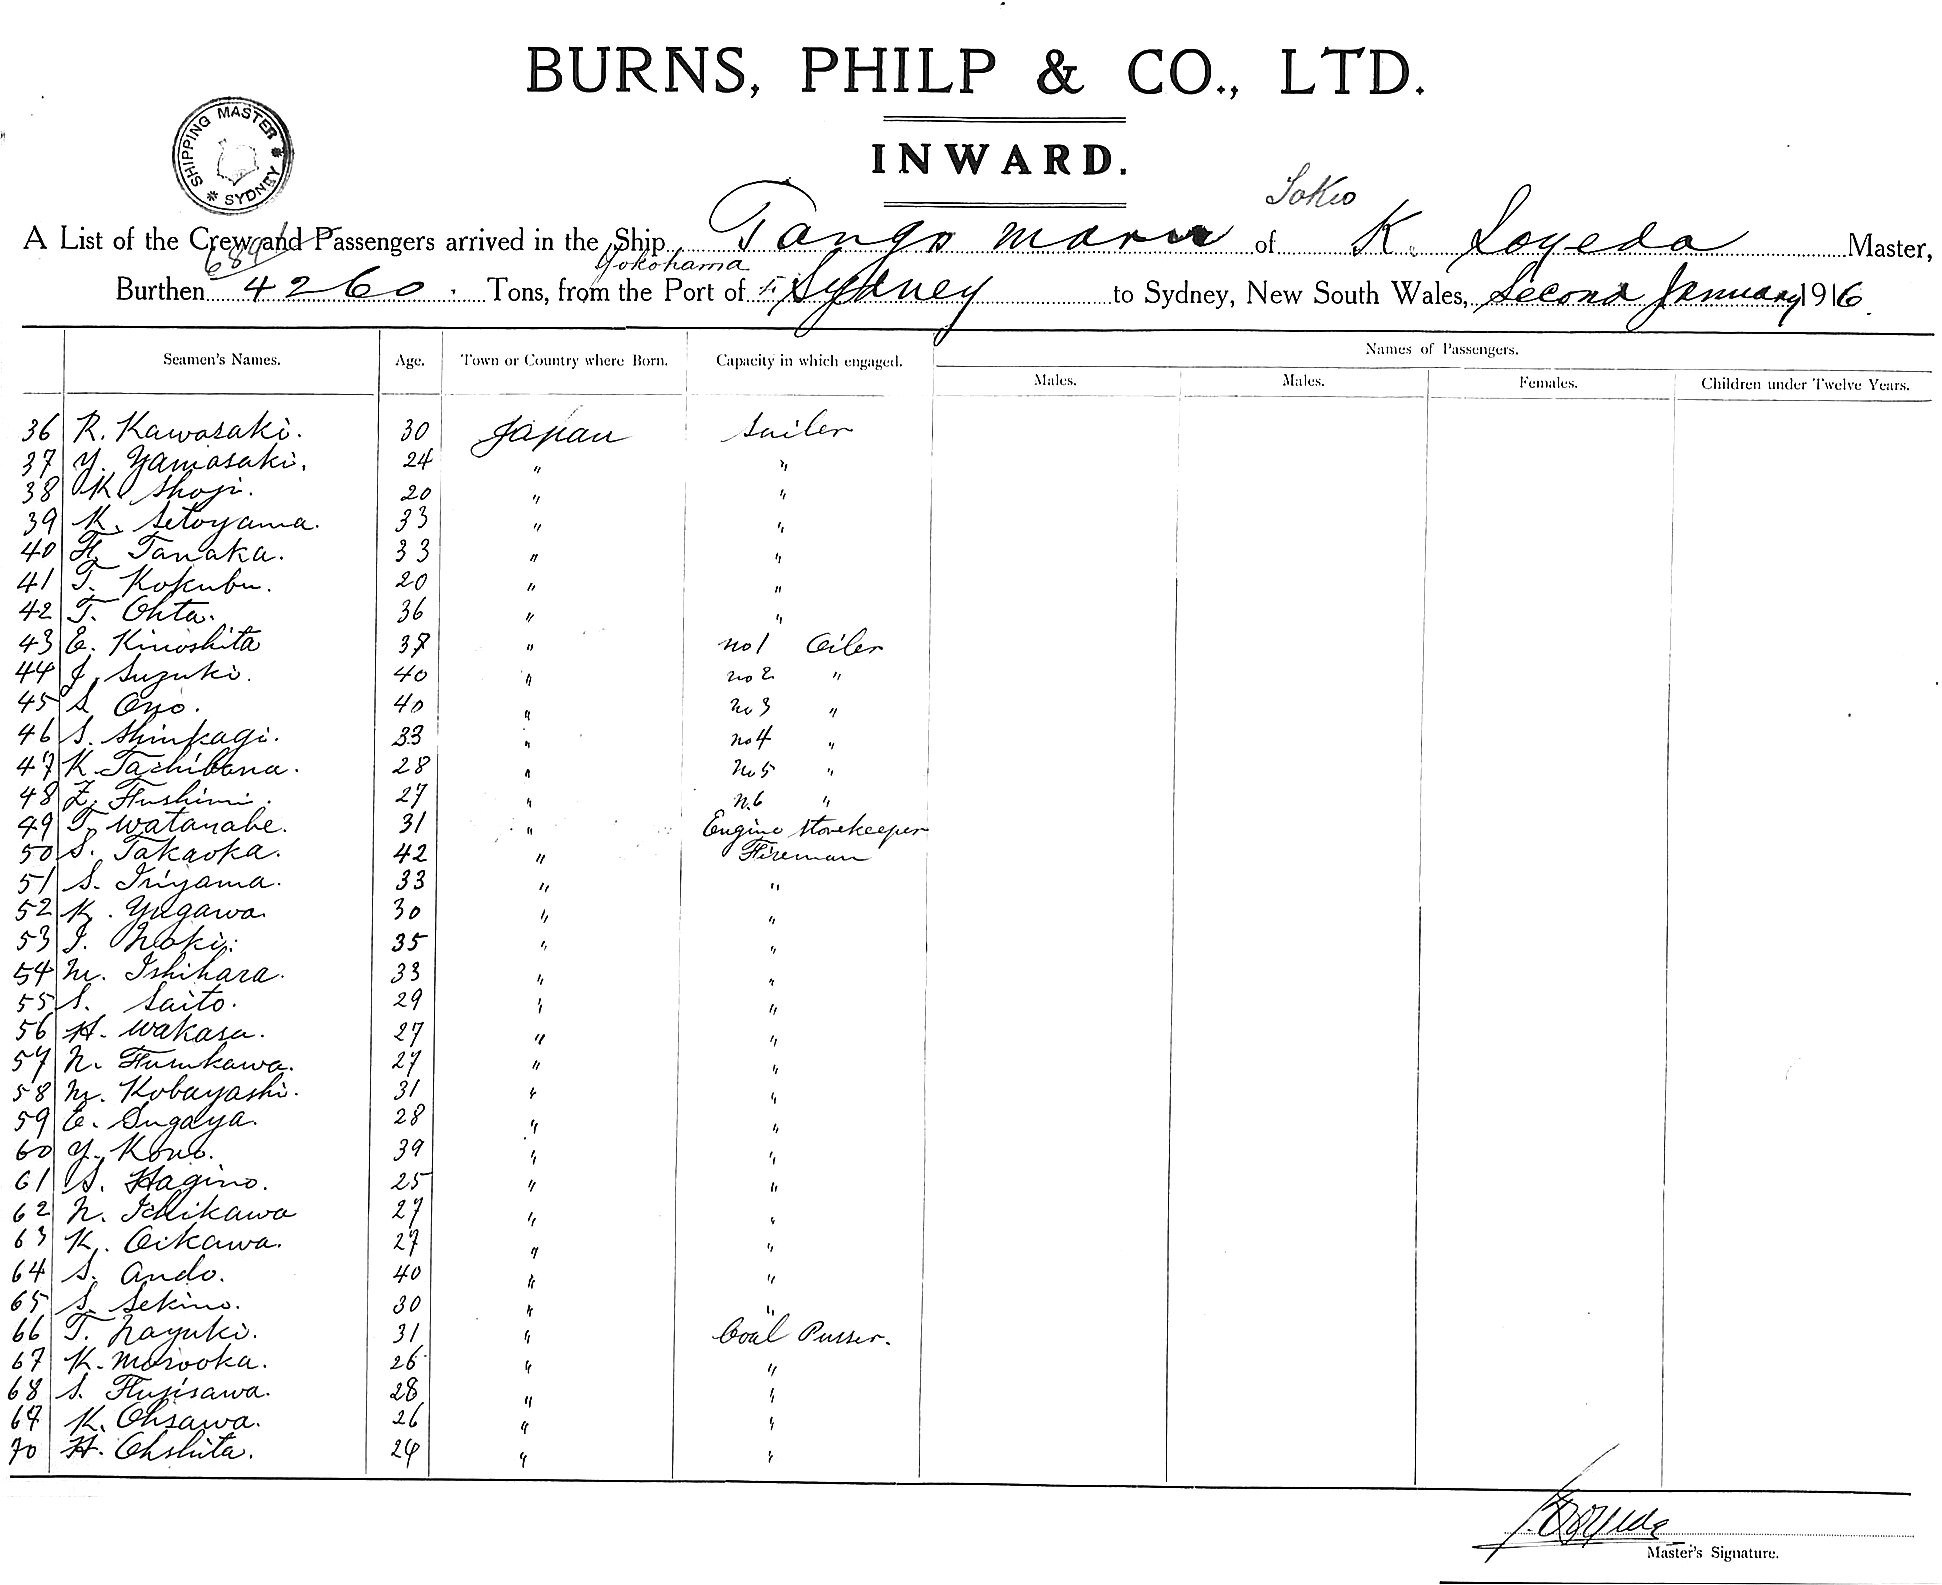 BURNS, PHILP & CO., LTD.
SHIPPING MASTER * SYDNEY *
INWARD.
Tokio
A List of the Crew and Passengers arrived in the Ship Tango Maru of K. Soyeda Master,
Yokohama
Burthen 4260. Tons, from the Port of Sydney to Sydney, New South Wales, Second January 1916.
Seamen's Names. Age. Town or Country where Born. Capacity in which engaged. Names of Passengers.
Males. Males. Females. Children under Twelve Years.
36 R. Kawasaki. 30 Japan Sailer
37 Y. Yamasaki. 24 " "
38 K. Shoji. 20 " "
39 K. Setoyama. 33 " "
40 H. Tanaka. 33 " "
41 T. Kokubu. 20 " "
42 T. Ohta. 36 " "
43 E. Kinoshita 37 " No 1 Oiler
44 J. Suzuki. 40 " No 2 "
45 S. Ono. 40 " No 3 "
46 S. Shinkagi. 33 " No 4 "
47 K. Tachibana. 28 " No 5 "
48 Z. Fushimi. 27 " N. 6 "
49 T. Watanabe. 31 " Engine Storekeeper
50 S. Takaoka. 42 " Fireman
51 S. Iriyama. 33 " "
52 K. Yugawa. 30 " "
53 I. Maki. 35 " "
54 M. Ishihara. 33 " "
55 S. Saito. 29 " "
56 H. Wakasa. 27 " "
57 N. Furukawa. 27 " "
58 M. Kobayashi. 31 " "
59 E. Sugaya. 28 " "
60 Y. Kono. 39 " "
61 S. Hagino. 25 " "
62 N. Ichikawa 27 " "
63 K. Oikawa. 27 " "
64 S. Ando. 40 " "
65 S. Sekino. 30 " "
66 T. Nayuki. 31 " Coal Passer.
67 K. Morooka. 26 " "
68 S. Fujisawa. 28 " "
69 K. Ohsawa. 26 " "
70 H. Ohshita. 24 " "
K. Soyeda
Master's Signature.